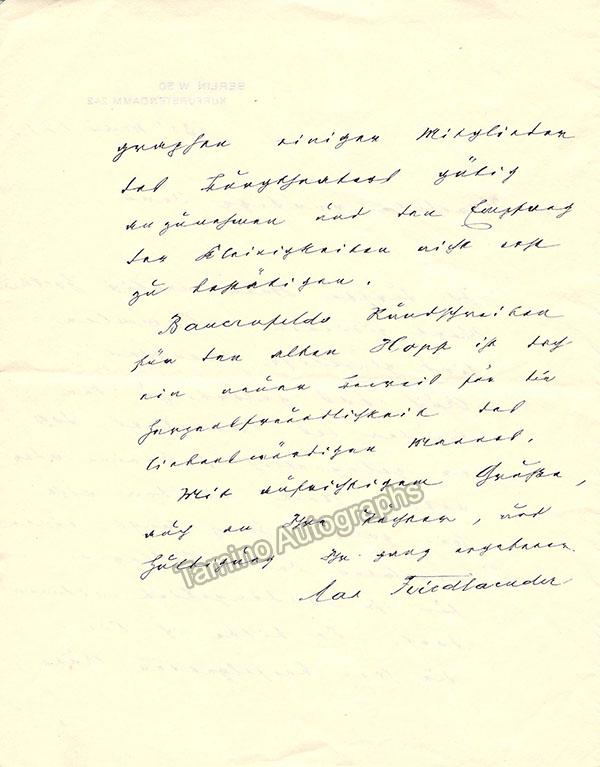 BERLIN W 30
KURFÜRSTENDAMM 242
graphen einiger Mitglieder
des Burgtheaters gütig
anzunehmen und den Empfang
der Kleinigkeiten nicht erst
zu bestätigen.
Bauernfelds Rundschreiben
für den alten Hopp ist doch
ein neuer Beweis für die
Herzensfreundlichkeit des
liebenswürdigen Mannes.
Mit aufrichtigem Gruße,
auch an Ihre Töchter, und
Huldigung Ihr ganz ergebener
Max Friedlaender
Tamino Autographs